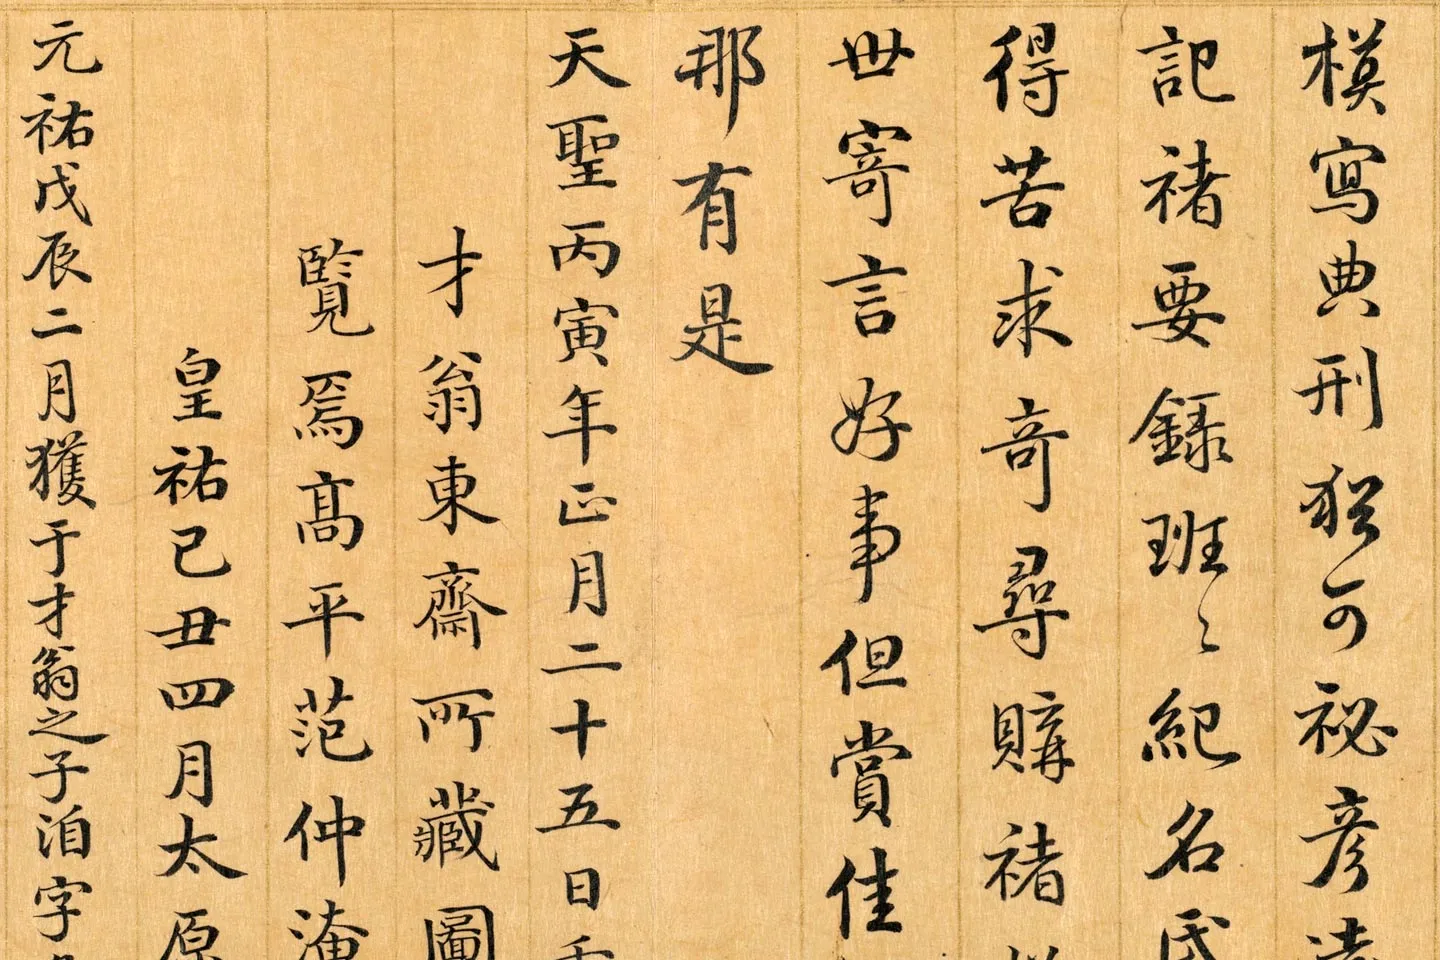 模寫典刑猶可秘彥遠
記褚要錄班〻紀名氏
得苦求奇尋購褚
世寄言好事但賞佳
那有是
天聖丙寅年正月二十五日重
才翁東齋所藏圖
覽焉高平范仲淹
皇祐己丑四月太原
元祐戊辰二月獲于才翁之子洎字